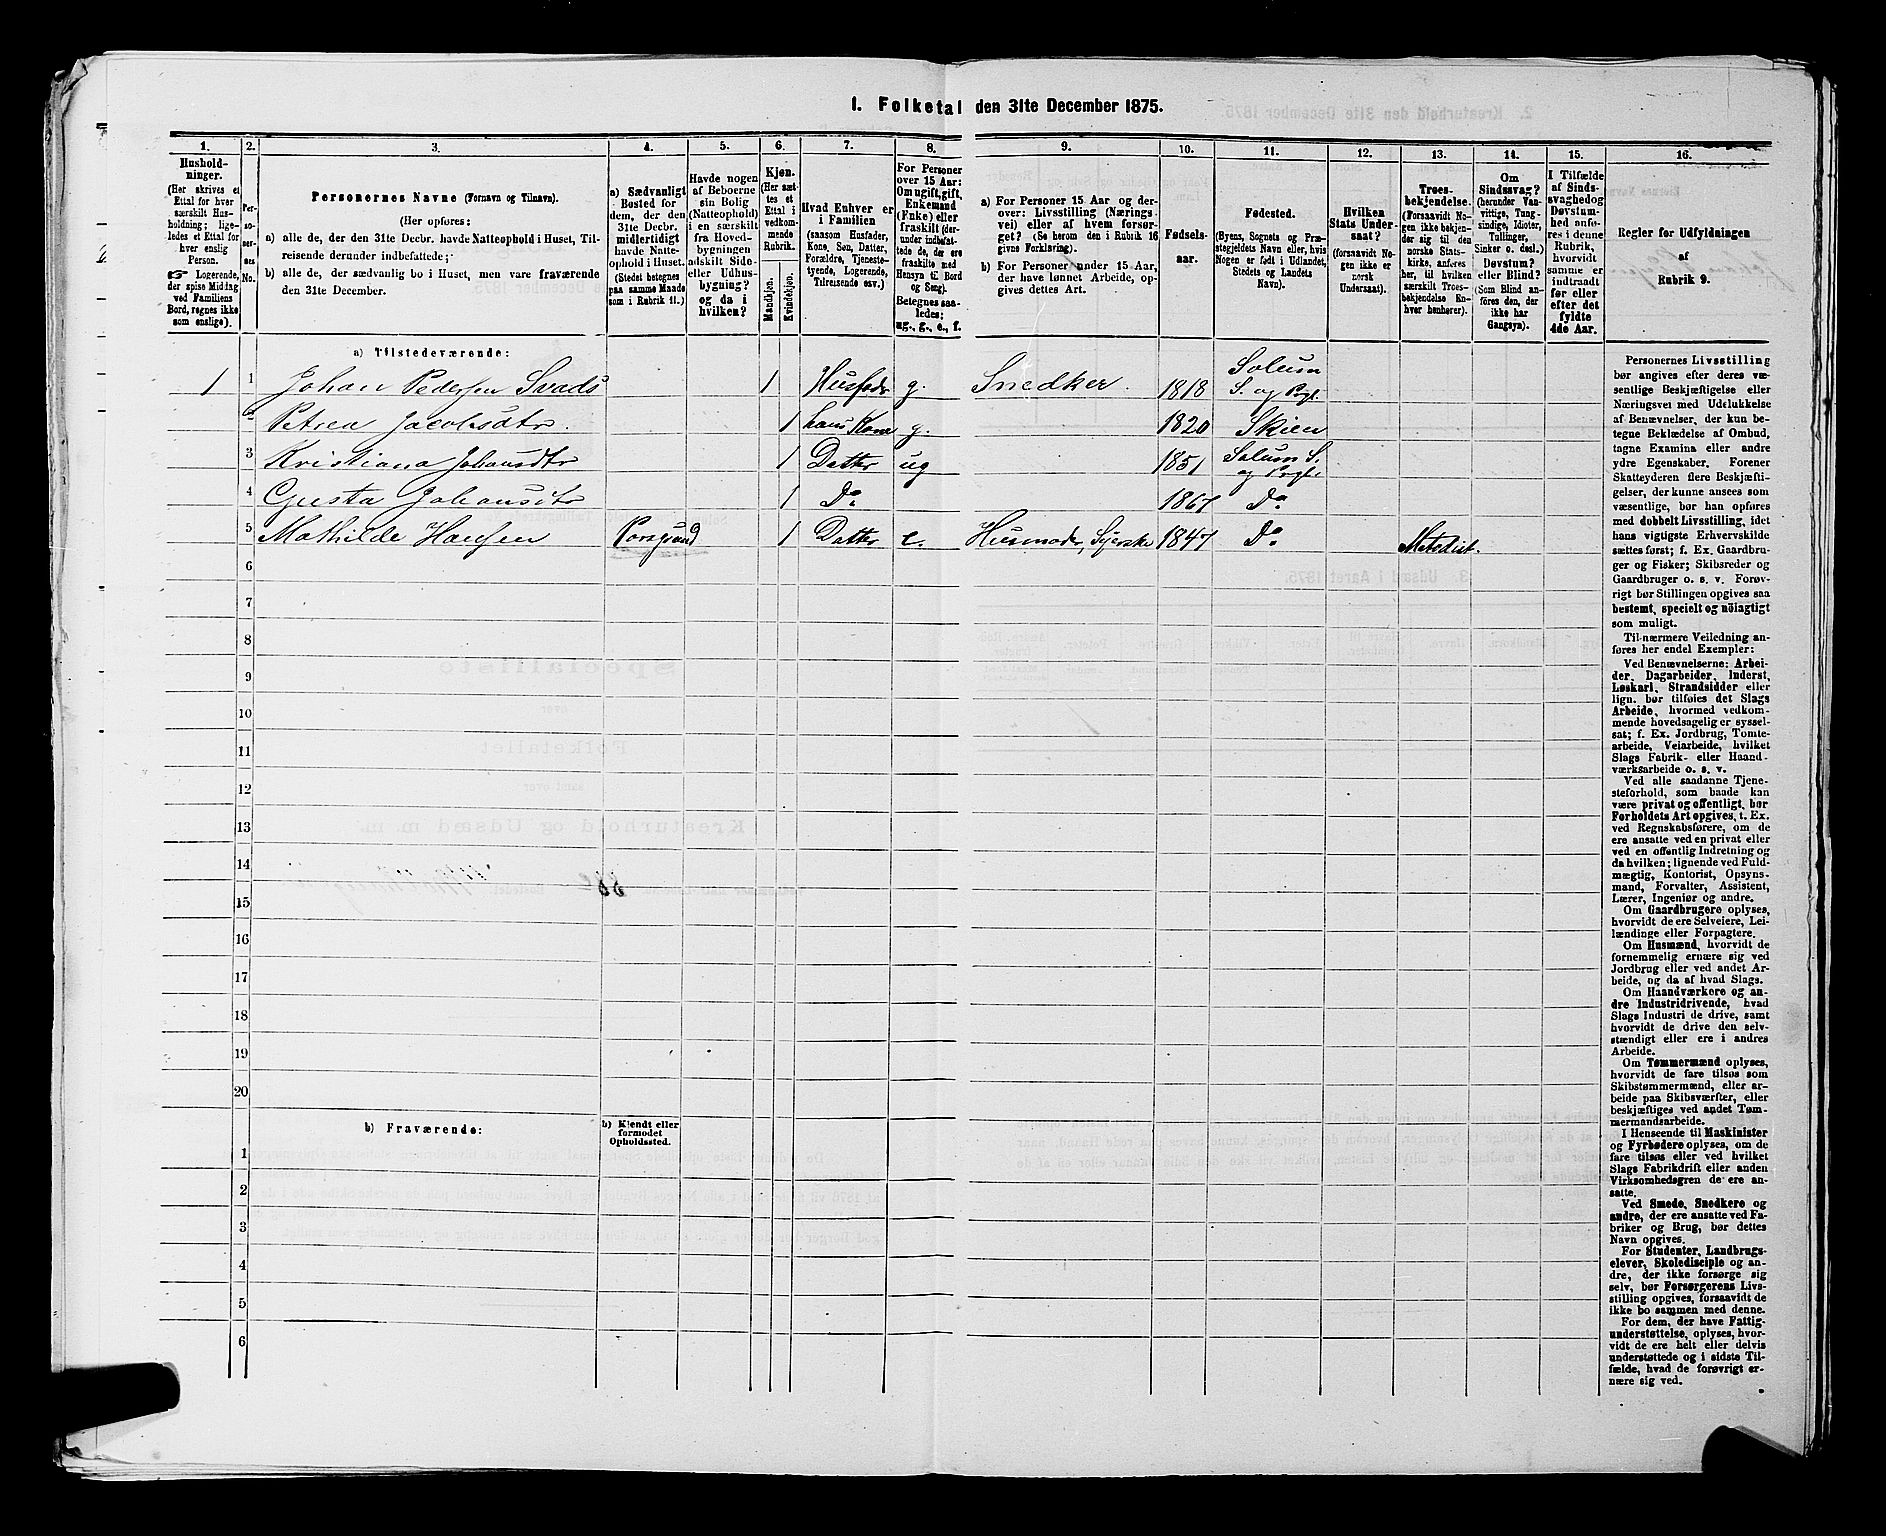 1. Folketal den 31te December 1875.
1. 2. 3. 4. 5. 6. 7. 8. 9. 10. 11. 12. 13. 14. 15. 16.
Hushold-
ninger.
(Her skrives et
Ettal for hver
særskilt Hus-
holdning; lige-
ledes et Ettal for
hver enslig
Person.
☞ Logerende,
der spise Middag
ved Familiens
Bord, regnes ikke
som enslige).
Per-
so-
ner-
nes
No.
Personernes Navne (Fornavn og Tilnavn).
(Her opføres:
a) alle de, der den 31te Decbr. havde Natteophold i Huset, Til-
reisende derunder indbefattede;
b) alle de, der sædvanlig bo i Huset, men vare fraværende
den 31te December.
a) Sædvanligt
Bosted for
dem, der den
31te Decbr.
midlertidigt
havde Natte-
ophold i Huset.
(Stedet betegnes
paa samme Maade
som i Rubrik 11.)
Havde nogen
af Beboerne
sin Bolig
(Natteophold)
i en særskilt
fra Hoved-
bygningen
adskilt Side-
eller Udhus-
bygning?
og da i
hvilken?
Kjøn.
(Her sæt-
tes et
Ettal i
vedkom-
mende
Rubrik.
Mandkjøn.
Kvindekjøn.
Hvad Enhver er
i Familien
(saasom Husfader,
Kone, Søn, Datter,
Forældre, Tjeneste-
tyende, Logerende,
Tilreisende osv.)
For Personer
over 15 Aar:
Om ugift, gift,
Enkemand
(Enke) eller
fraskilt (der-
under indbefat-
tede de, der ere
fraskilte med
Hensyn til Bord
og Seng).
Betegnes saa-
ledes:
ug., g., e., f.
a) For Personer 15 Aar og der-
over: Livsstilling (Nærings-
vei) eller af hvem forsør-
get? (Se herom den i Rubrik 16
givne Forklaring).
b) For Personer under 15 Aar,
der have lønnet Arbeide, op-
gives dettes Art.
Fødsels-
aar.
Fødested.
(Byens, Sognets og Præ-
stegjeldets Navn eller, hvis
Nogen er født i Udlandet,
Stedets og Landets
Navn).
Hvilken
Stats Under-
saat?
(forsaavidt No-
gen ikke er
norsk
Undersaat).
Troes-
bekjendelse.
(Forsaavidt No-
gen ikke bekjen-
der sig til den
norske Stats-
kirke, anføres
her, til hvilken
særskilt Troes-
bekjendelse En-
hver henhører).
Om
Sindssvag?
(herunder Van-
vittige, Tung-
sindige, Idioter,
Tullinger,
Sinker o. desl.)
Døvstum?
eller Blind?
(Som Blind an-
føres den, der
ikke har
Gangsyn).
I Tilfælde
af Sinds-
svaghed og
Døvstum-
hed anfø-
res i denne
Rubrik,
hvorvidt
samme er
indtraadt
før eller
efter det
fyldte
4de Aar.
Regler for Udfyldningen
af
Rubrik 9.
a) Tilstedeværende:
1 1 Johan Pedersen Svads 1 Husfader g. Snedker. 1818 Solum S. og Pgl.
2 Petrea Jacobsdtr. 1 hans Kone g. 1820 Skien
3 Kristiana Johansdtr 1 Datter ug 1851 Solum S. og Prgl.
4 Gusta Johansdtr 1 Do 1867 Do
5 Mathilde Hansen Porsgrund 1 Datter e. Husmoder, Syerske 1847 Do Metodist.
6
7
8
9
10
11
12
13
14
15
16
17
18
19
20
b) Fraværende:
b) Kjendt eller
formodet
Opholdssted.
1
2
3
4
5
6
Personernes Livsstilling
bør angives efter deres væ-
sentlige Beskjæftigelse eller
Næringsvei med Udelukkelse
af Benævnelser, der kun be-
tegne Beklædelse af Ombud,
tagne Examina eller andre
ydre Egenskaber. Forener
Skatteyderen flere Beskjæfti-
gelser, der kunne ansees som
væsentlige, bør han opføres
med dobbelt Livsstilling, idet
hans vigtigste Erhvervskilde
sættes først; f. Ex. Gaardbru-
ger og Fisker; Skibsreder og
Gaardbruger o. s. v. Forøv-
rigt bør Stillingen opgives saa
bestemt, specielt og nöiagtigt
som muligt.
Til nærmere Veiledning an-
føres her endel Exempler:
Ved Benævnelserne: Arbei-
der, Dagarbeider, Inderst,
Løskarl, Strandsidder eller
lign. bør tilføies det Slags
Arbeide, hvormed vedkom-
mende hovedsagelig er syssel-
sat; f. Ex. Jordbrug, Tomte-
arbeide, Veiarbeide, hvilket
Slags Fabrik- eller Haand-
værksarbeide o. s. v.
Ved alle saadanne Tjene-
steforhold, som baade kan
være privat og offentligt, bør
Forholdets Art opgives, t. Ex.
ved Regnskabsførere, om de
ere ansatte ved en privat eller
ved en offentlig Indretning og
da hvilken; lignende ved Fuld-
mægtig, Kontorist, Opsyns-
mand, Forvalter, Assistent,
Lærer, Ingeniør og andre.
Om Gaardbrugere oplyses,
hvorvidt de ere Selveiere, Lei-
lændinge eller Forpagtere.
Om Husmænd, hvorvidt de
fornemmelig ernære sig ved
Jordbrug eller ved andet Ar-
beide, og da af hvad Slags.
Om Haandværkere og an-
dre Industridrivende, hvad
Slags Industri de drive, samt
hvorvidt de drive den selv-
stændigt eller ere i andres
Arbeide.
Om Tømmermænd oplyses,
hvorvidt de fare tilsøs som
Skibstømmermænd, eller ar-
beide paa Skibsværfter, eller
beskjæftiges ved andet Tøm-
mermandsarbeide.
I Henseende til Maskinister
og Fyrbødere oplyses, om de
fare tilsøs eller ved hvilket
Slags Fabrikdrift eller anden
Virksomhedsgren de ere an-
satte.
Ved Smede, Snedkere og
andre, der ere ansatte ved Fa-
briker og Brug, bør dettes
Navn opgives.
For Studenter, Landbrugs-
elever, Skoledisciple og an-
dre, der ikke forsørge sig
selv, bør Forsørgerens Livs-
stilling opgives, forsaavidt de
ikke bo sammen med denne.
For dem, der have Fattig-
understøttelse, oplyses, hvor-
vidt de ere helt eller delvis
understøttede og i sidste Til-
fælde, hvad de forøvrigt er-
nære sig ved.